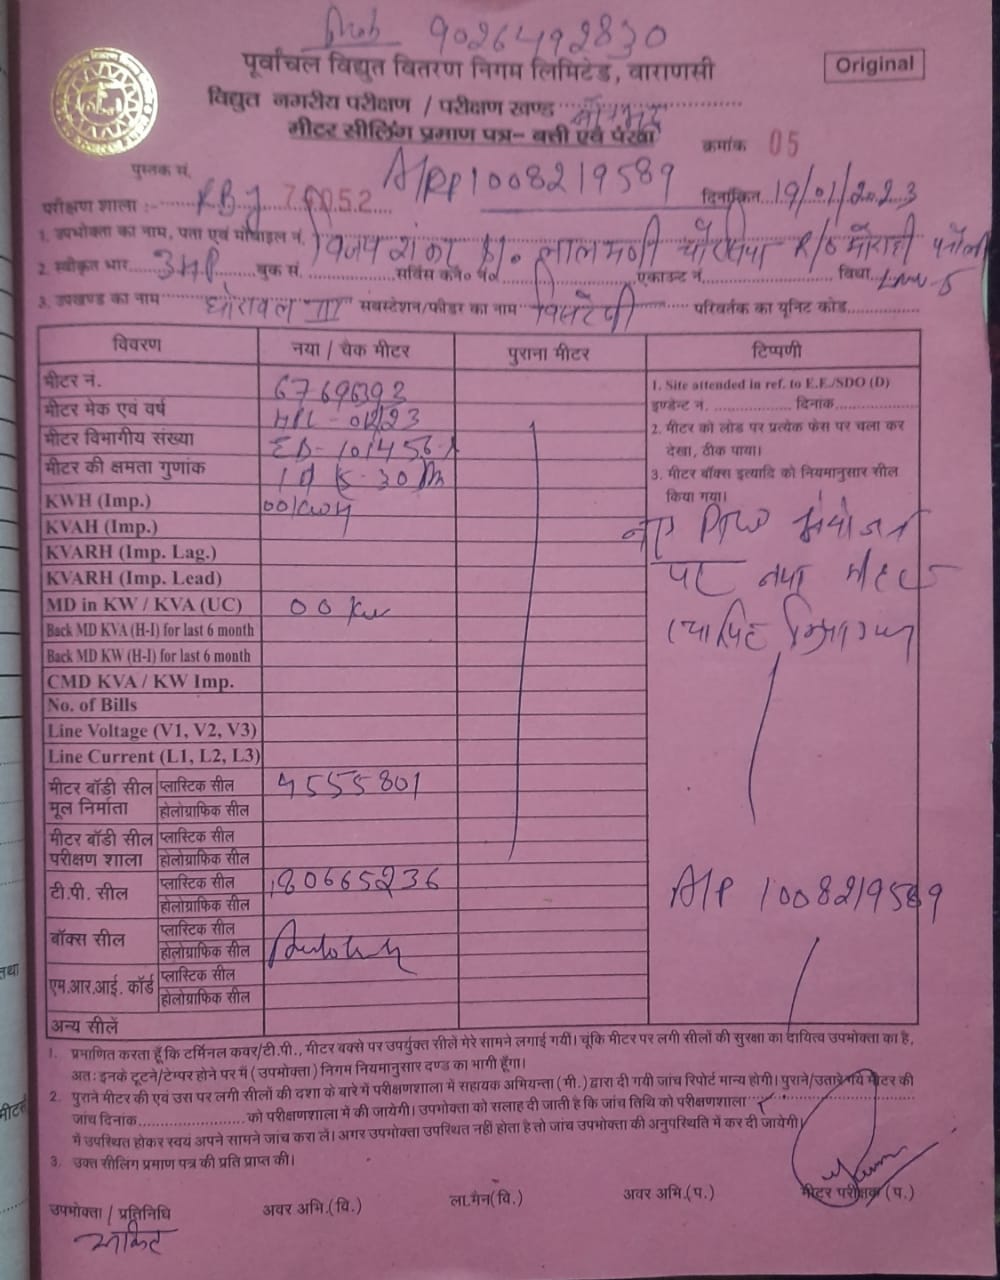 Mob 9026492830
पूर्वांचल विद्युत वितरण निगम लिमिटेड, वाराणसी
Original
विद्युत नगरीय परीक्षण / परीक्षण खण्ड
मीटर सीलिंग प्रमाण पत्र- बत्ती एवं पंखा
क्रमांक 05
पुस्तक सं.
A/RP 1008219589
परीक्षण शाला :- RBJ 70052 दिनांकित 19/01/2023
1. उपभोक्ता का नाम, पता एवं मोबाइल नं. विजय शंकर S/o लालमणी चौरसिया R/o
2. स्वीकृत भार 3HP बुक सं. सर्विस कने० नं० एकाउन्ट नं. विधा LMV-5
3. उपखण्ड का नाम घोरावल III सबस्टेशन/फीडर का नाम परिवर्तक का यूनिट कोड
विवरण नया / चैक मीटर पुराना मीटर टिप्पणी
मीटर नं. 67696393
मीटर मेक एवं वर्ष HPL - 02/23
मीटर विभागीय संख्या
मीटर की क्षमता गुणांक
KWH (Imp.) 001KWH
KVAH (Imp.)
KVARH (Imp. Lag.)
KVARH (Imp. Lead)
MD in KW / KVA (UC) 00 KW
Back MD KVA (H-I) for last 6 month
Back MD KW (H-I) for last 6 month
CMD KVA / KW Imp.
No. of Bills
Line Voltage (V1, V2, V3)
Line Current (L1, L2, L3)
मीटर बॉडी सील मूल निर्माता प्लास्टिक सील 4555801
होलोग्राफिक सील
मीटर बॉडी सील परीक्षण शाला प्लास्टिक सील
होलोग्राफिक सील
टी.पी. सील प्लास्टिक सील 80665236
होलोग्राफिक सील
बॉक्स सील प्लास्टिक सील
होलोग्राफिक सील
एम.आर.आई. कॉर्ड प्लास्टिक सील
होलोग्राफिक सील
अन्य सीलें
1. Site attended in ref. to E.E./SDO (D)
इण्डेन्ट नं. दिनांक
2. मीटर को लोड पर प्रत्येक फेस पर चला कर
देखा, ठीक पाया।
3. मीटर बॉक्स इत्यादि को नियमानुसार सील
किया गया।
नए PTW संयोजन
पर नया मीटर
स्थापित किया गया
A/P 1008219589
1. प्रमाणित करता हूँ कि टर्मिनल कवर/टी.पी., मीटर बक्से पर उपर्युक्त सीले मेरे सामने लगाई गयीं। चूंकि मीटर पर लगी सीलों की सुरक्षा का दायित्व उपभोक्ता का है,
अतः इनके टूटने/टेम्पर होने पर मैं (उपभोक्ता) निगम नियमानुसार दण्ड का भागी हूँगा।
2. पुराने मीटर की एवं उस पर लगी सीलों की दशा के बारे में परीक्षणशाला में सहायक अभियन्ता (मी.) द्वारा दी गयी जांच रिपोर्ट मान्य होगी। पुराने/उतारे गये मीटर की
जांच दिनांक को परीक्षणशाला में की जायेगी। उपभोक्ता को सलाह दी जाती है कि जांच तिथि को परीक्षणशाला
में उपस्थित होकर स्वयं अपने सामने जांच करा लें। अगर उपभोक्ता उपस्थित नहीं होता है तो जांच उपभोक्ता की अनुपस्थिति में कर दी जायेगी।
3. उक्त सीलिंग प्रमाण पत्र की प्रति प्राप्त की।
उपभोक्ता / प्रतिनिधि अवर अभि.(वि.) ला.मैन(वि.) अवर अभि.(प.) मीटर परीक्षक (प.)
अंकित